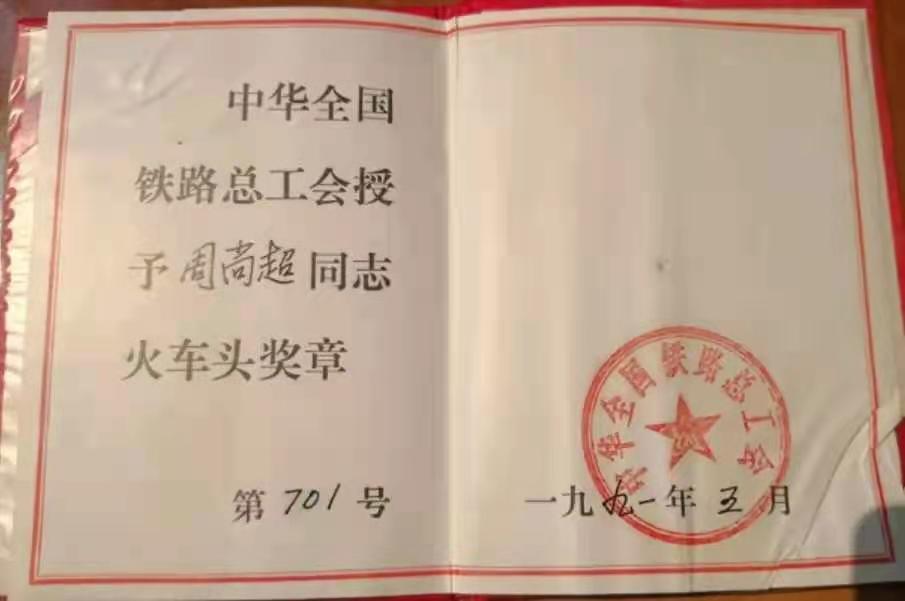 中华全国
铁路总工会授
予周尚超同志
火车头奖章
第701号
中华全国铁路总工会
一九九一年五月